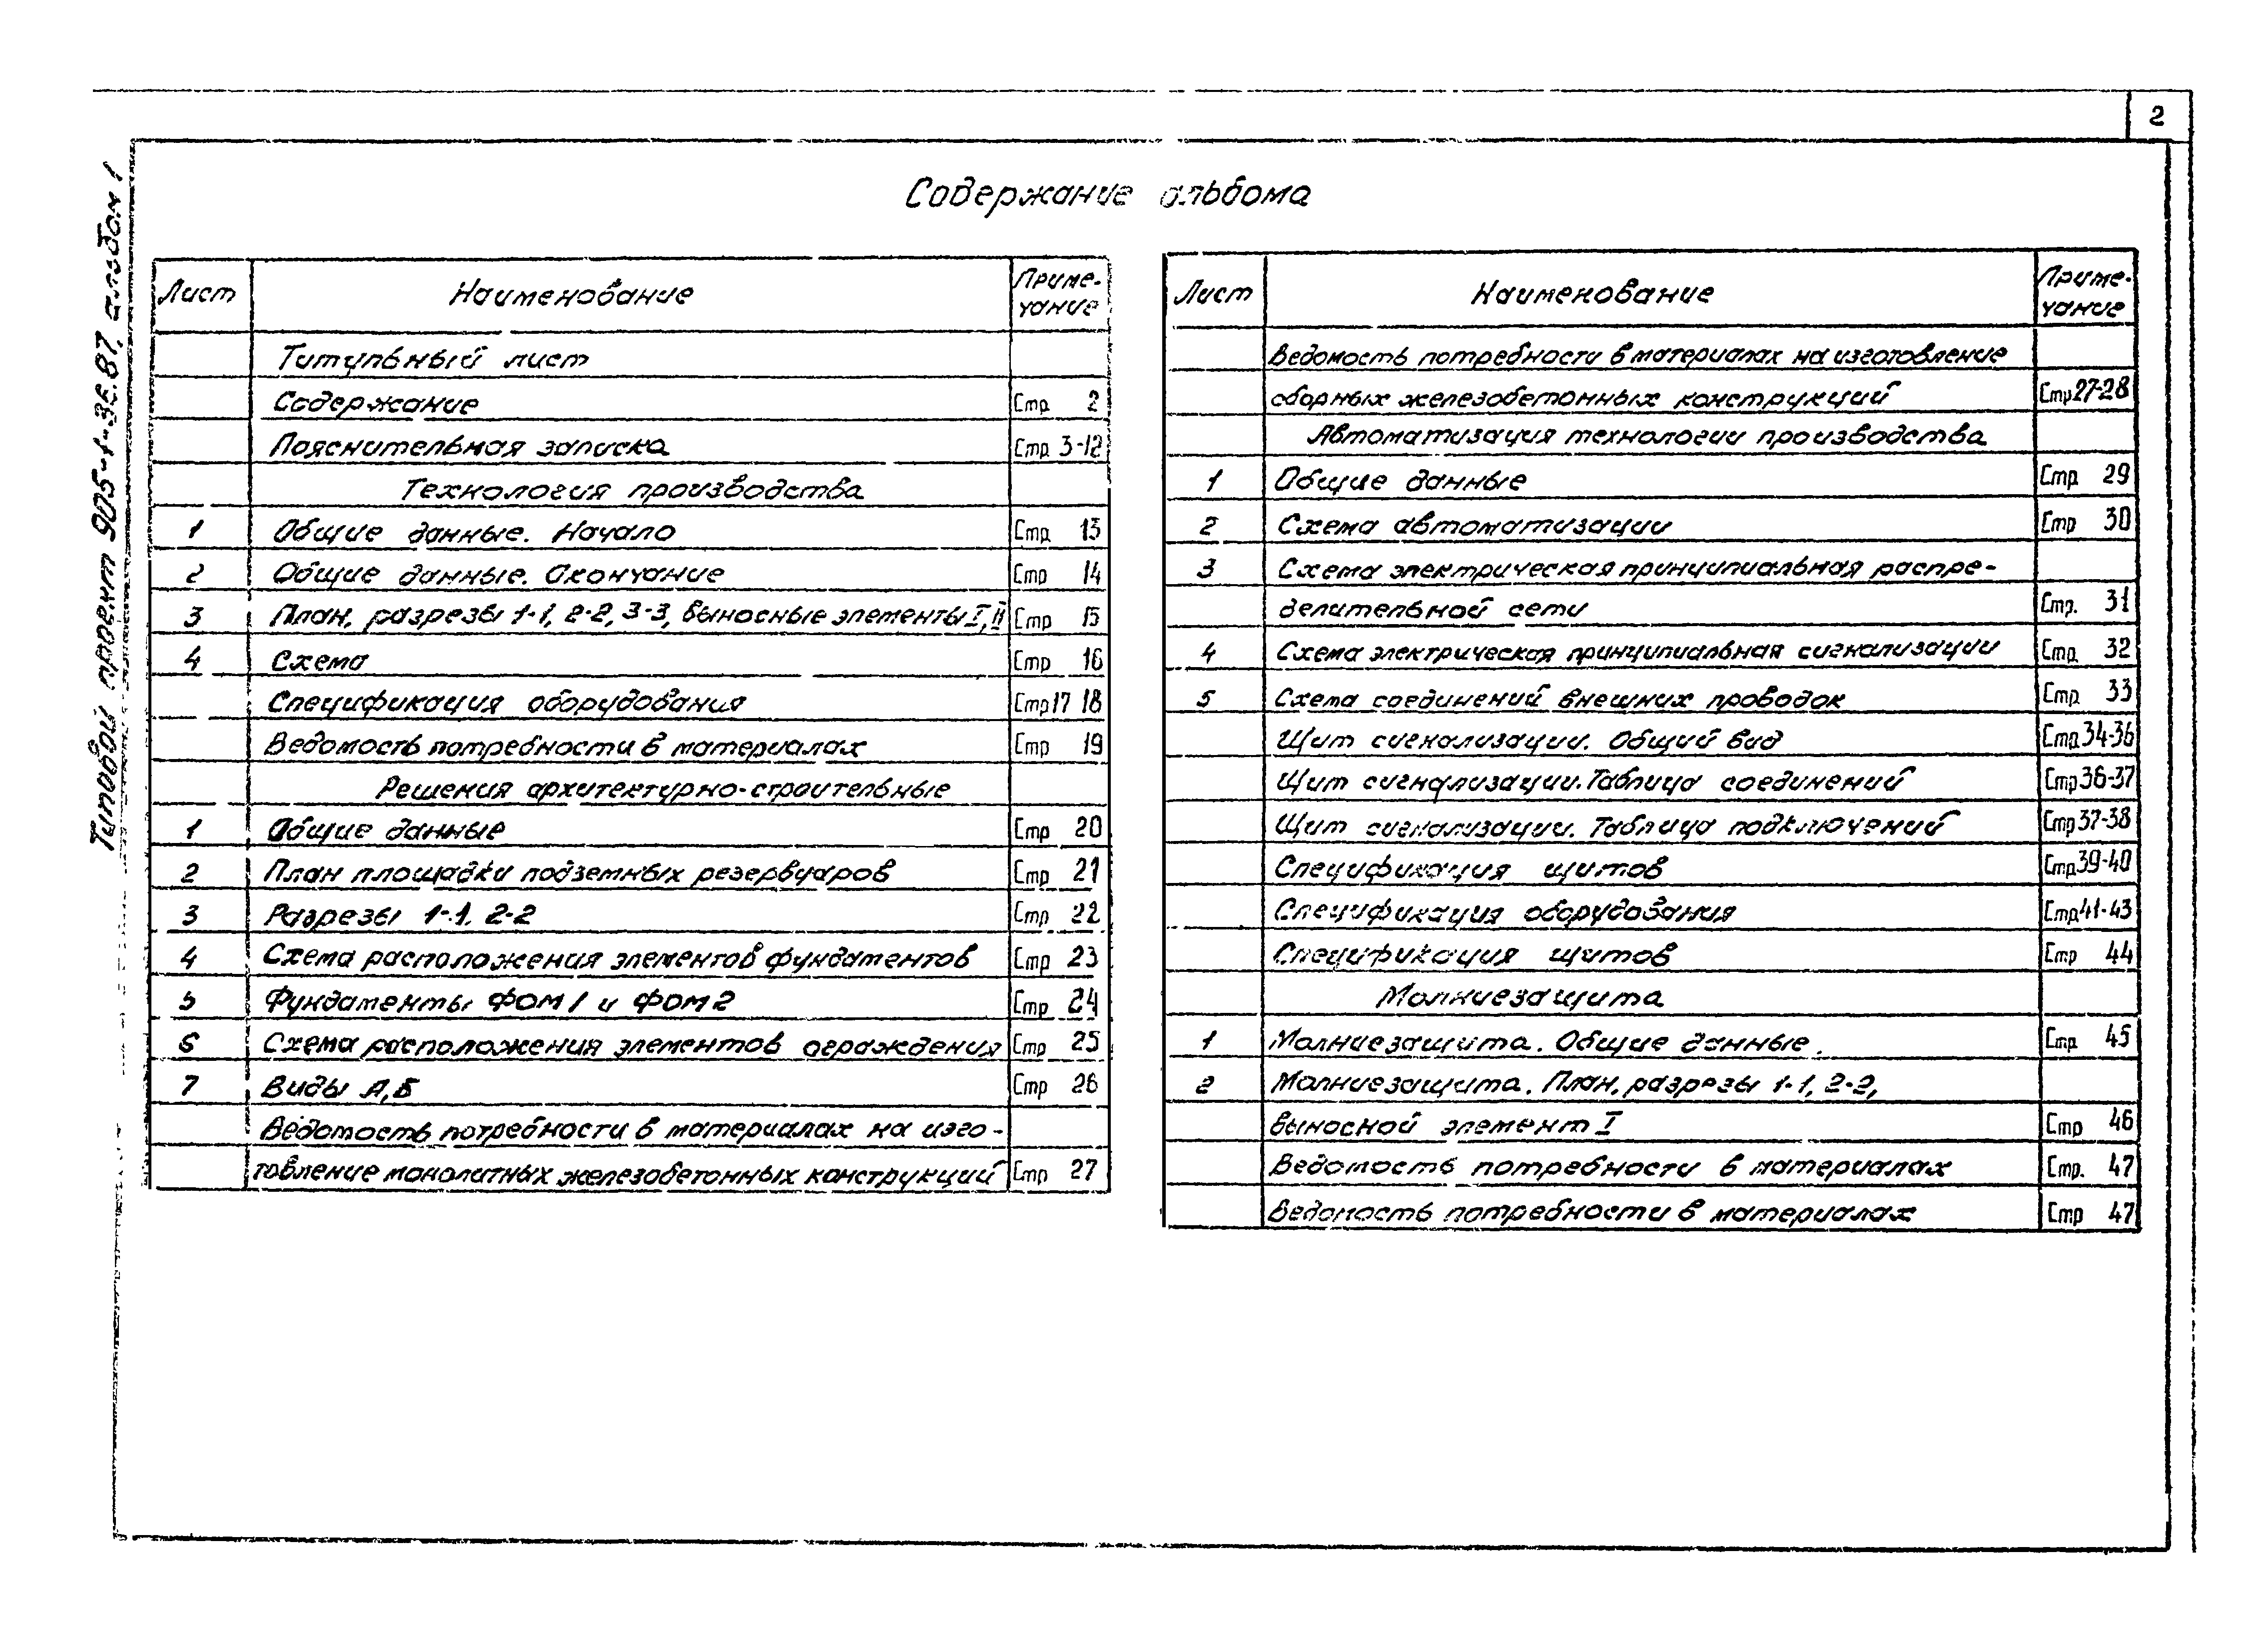 2
Типовой проект 905-1-3Е.87, альбом 1
Содержание альбома
Лист Наименование Приме-
чание
Титульный лист
Содержание Стр. 2
Пояснительная записка Стр. 3-12
Технология производства
1 Общие данные. Начало Стр. 13
2 Общие данные. Окончание Стр 14
3 План, разрезы 1-1, 2-2, 3-3, выносные элементы I, II Стр 15
4 Схема Стр 16
Спецификация оборудования Стр 17 18
Ведомость потребности в материалах Стр 19
Решения архитектурно-строительные
1 Общие данные Стр 20
2 План площадки подземных резервуаров Стр 21
3 Разрезы 1-1, 2-2 Стр 22
4 Схема расположения элементов фундаментов Стр 23
5 Фундаменты ФОМ1 и ФОМ2 Стр 24
6 Схема расположения элементов ограждения Стр 25
7 Виды А, Б Стр 26
Ведомость потребности в материалах на изго-
товление монолитных железобетонных конструкций Стр 27
Лист Наименование Приме-
чание
Ведомость потребности в материалах на изготовление
сборных железобетонных конструкций Стр 27-28
Автоматизация технологии производства
1 Общие данные Стр. 29
2 Схема автоматизации Стр 30
3 Схема электрическая принципиальная распре-
делительной сети Стр. 31
4 Схема электрическая принципиальная сигнализации Стр. 32
5 Схема соединений внешних проводок Стр. 33
Щит сигнализации. Общий вид Стр. 34-36
Щит сигнализации. Таблица соединений Стр 36-37
Щит сигнализации. Таблица подключений Стр 37-38
Спецификация щитов Стр. 39-40
Спецификация оборудования Стр. 41-43
Спецификация щитов Стр 44
Молниезащита
1 Молниезащита. Общие данные. Стр. 45
2 Молниезащита. План, разрезы 1-1, 2-2,
выносной элемент I Стр 46
Ведомость потребности в материалах Стр. 47
Ведомость потребности в материалах Стр 47